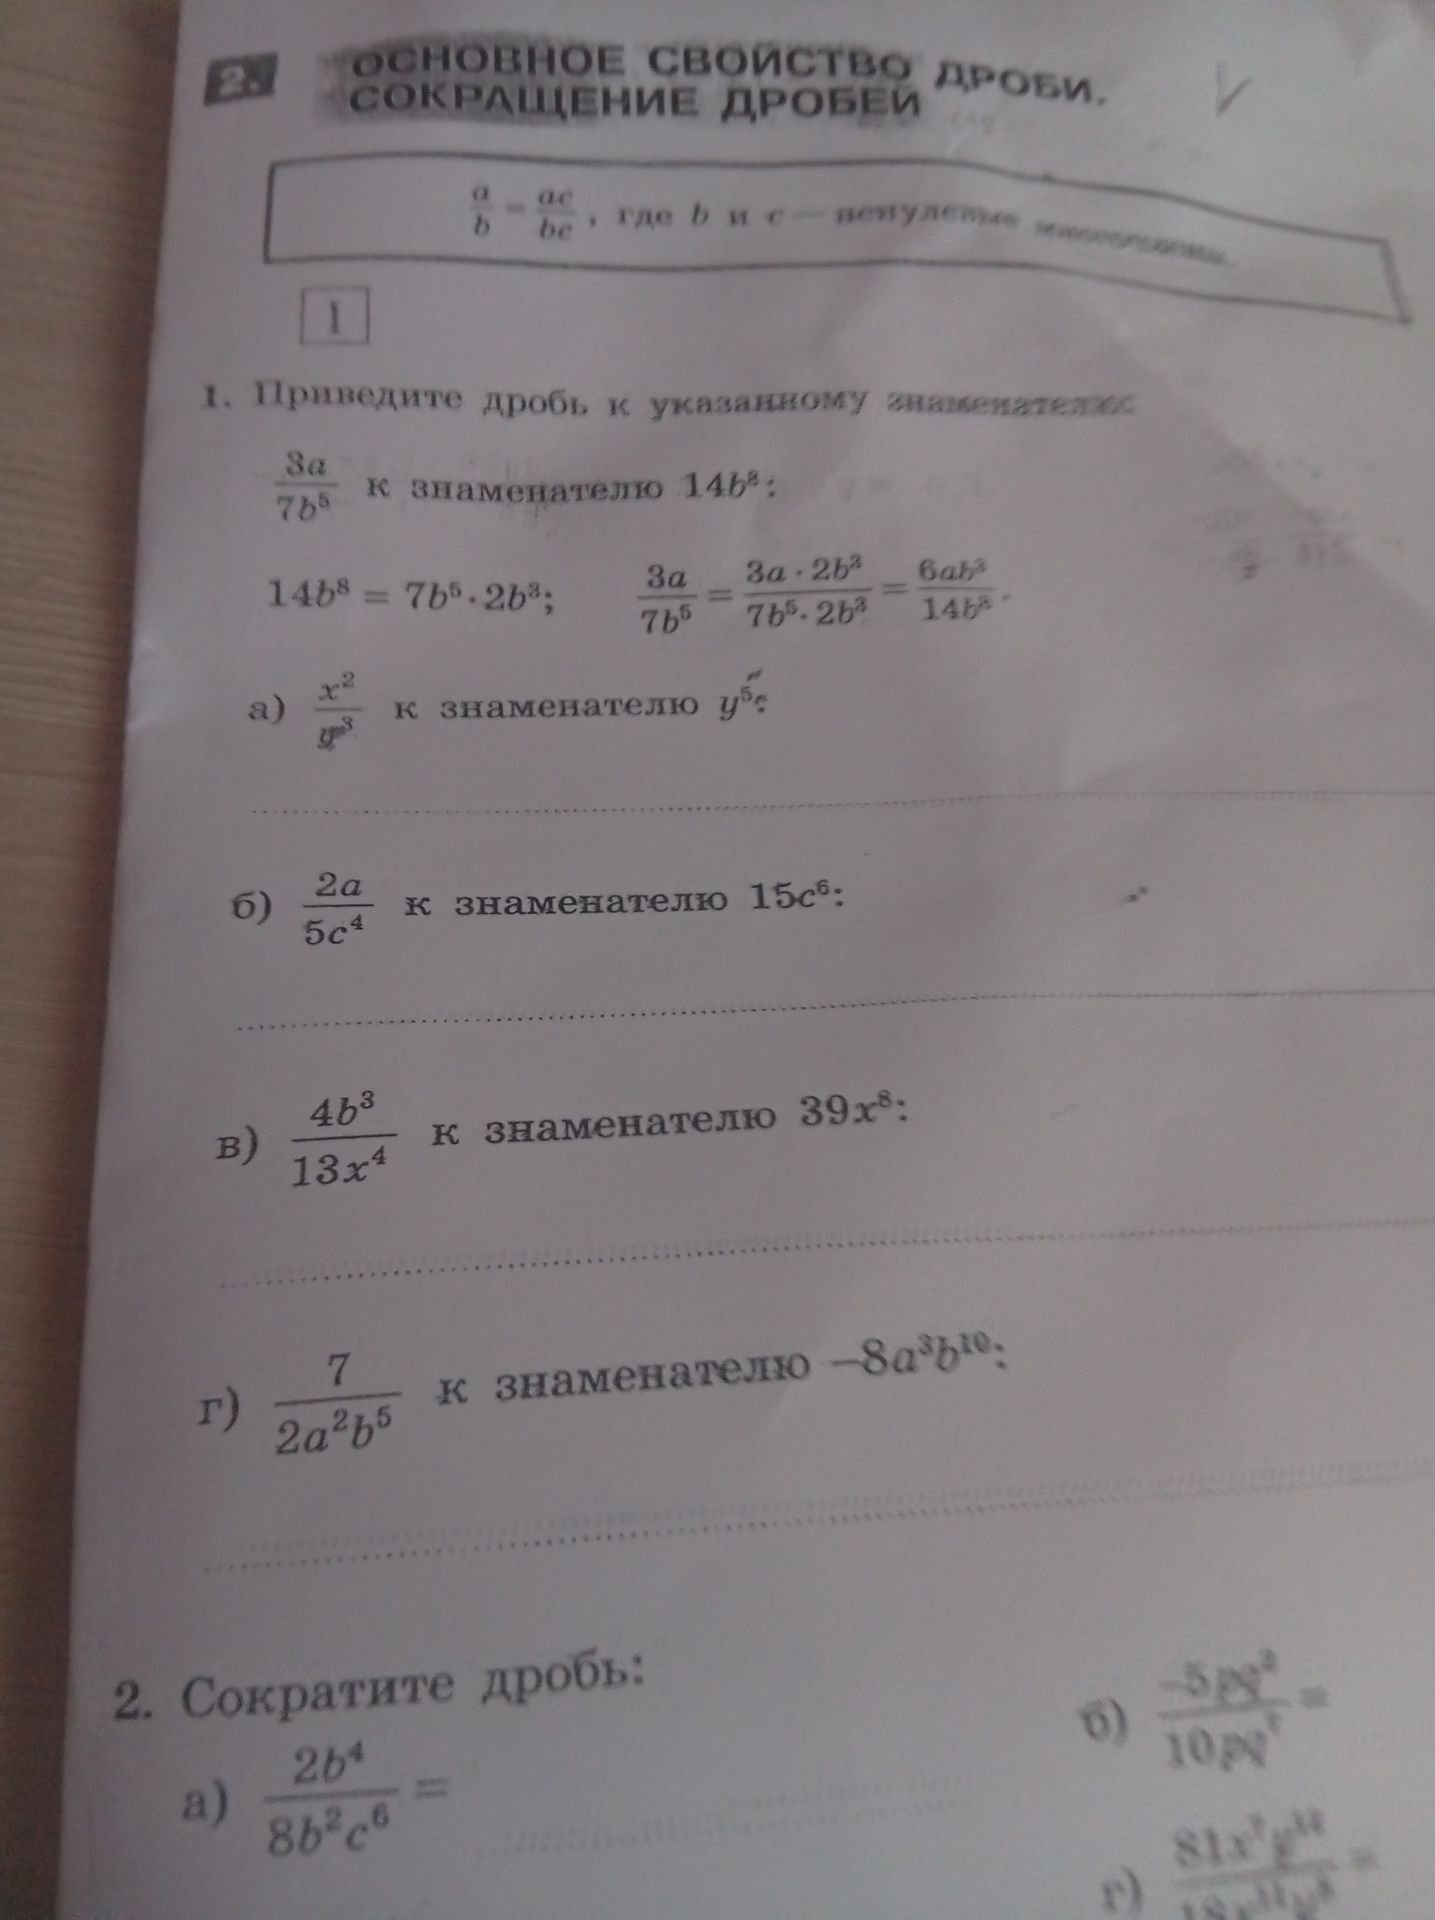 2.
ОСНОВНОЕ СВОЙСТВО ДРОБИ.
СОКРАЩЕНИЕ ДРОБЕЙ
a/b = ac/bc, где b и c — ненулевые многочлены.
1
1. Приведите дробь к указанному знаменателю:
3a/7b⁵ к знаменателю 14b⁸:
14b⁸ = 7b⁵ · 2b³; 3a/7b⁵ = 3a · 2b³/7b⁵ · 2b³ = 6ab³/14b⁸.
а) x²/y³ к знаменателю y⁵:
б) 2a/5c⁴ к знаменателю 15c⁶:
в) 4b³/13x⁴ к знаменателю 39x⁸:
г) 7/2a²b⁵ к знаменателю –8a³b¹⁰:
2. Сократите дробь:
а) 2b⁴/8b²c⁶ =
б)
г)